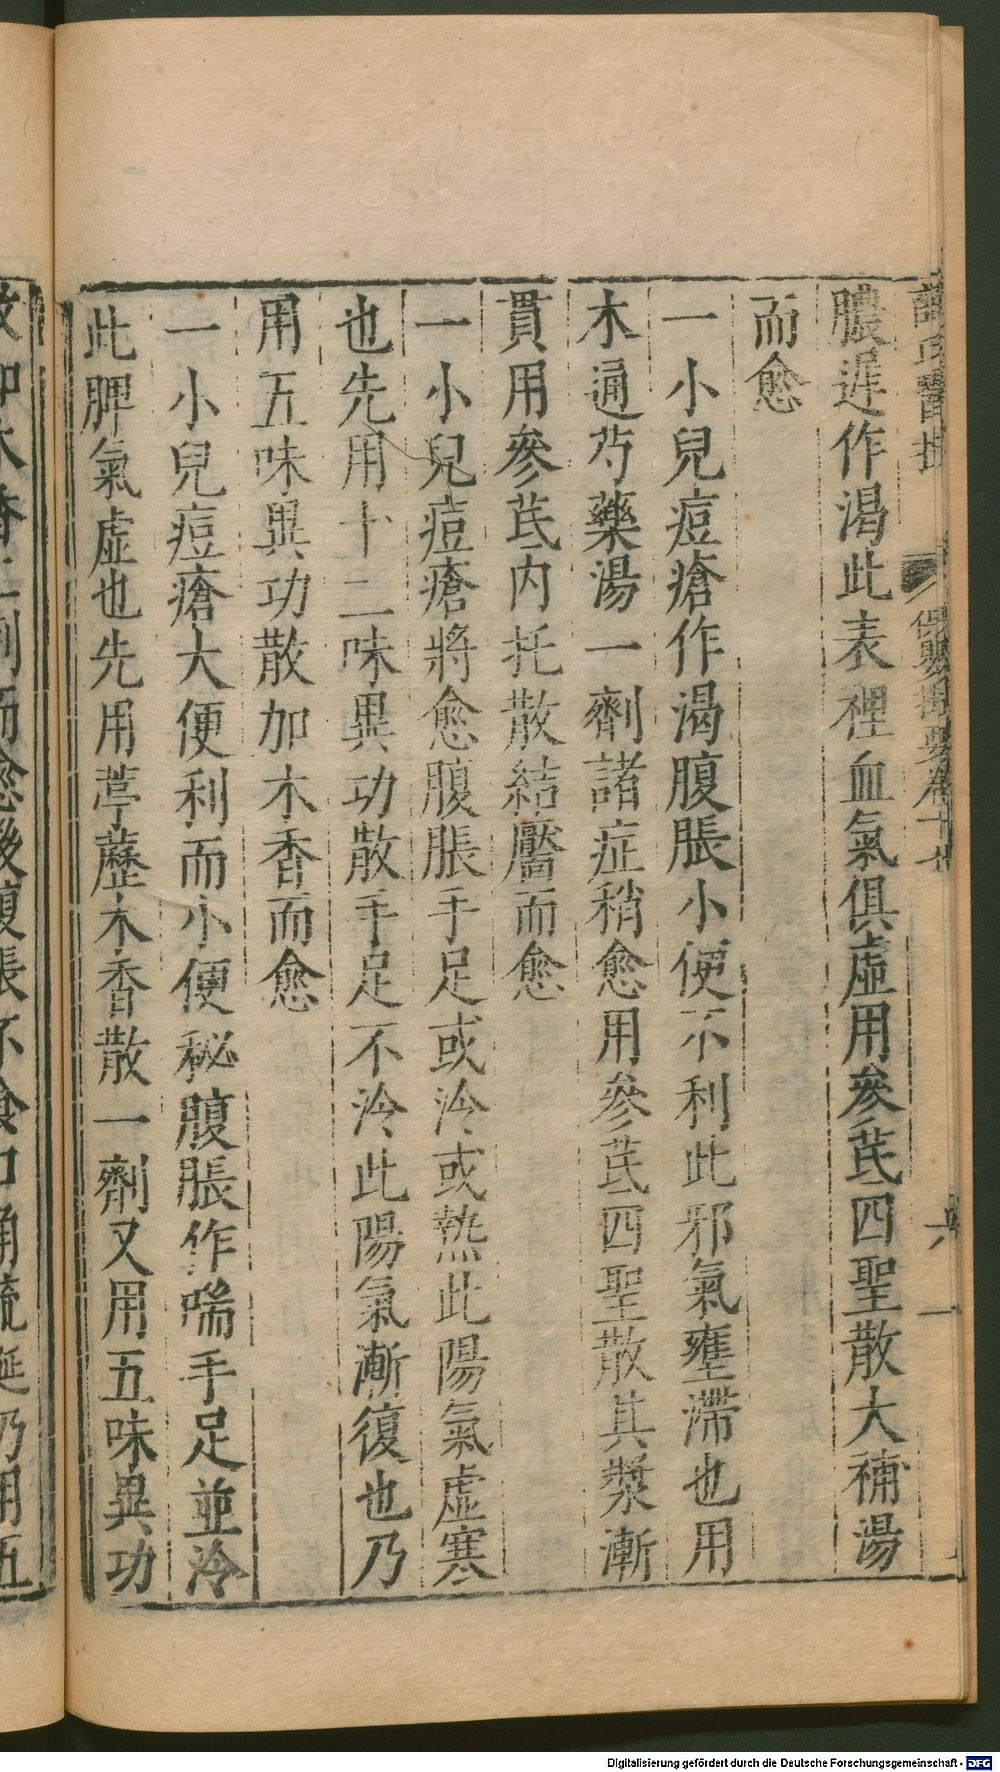 保嬰撮要卷十
膿遲作渴此表裡血氣俱虛用參芪四聖散大補湯
而愈
一小兒痘瘡作渴腹脹小便不利此邪氣壅滯也用
木通芍藥湯一劑諸症稍愈用參芪四聖散其漿漸
貫用參芪内托散結靨而愈
一小兒痘瘡將愈腹脹手足或冷或熱此陽氣虛寒
也先用十二味異功散手足不冷此陽氣漸復也乃
用五味異功散加木香而愈
一小兒痘瘡大便利而小便秘腹脹作喘手足並冷
此脾氣虛也先用葶藶木香散一劑又用五味異功
木香二劑而愈後腹脹不食口角流涎乃用五
Digitalisierung gefördert durch die Deutsche Forschungsgemeinschaft - DFG